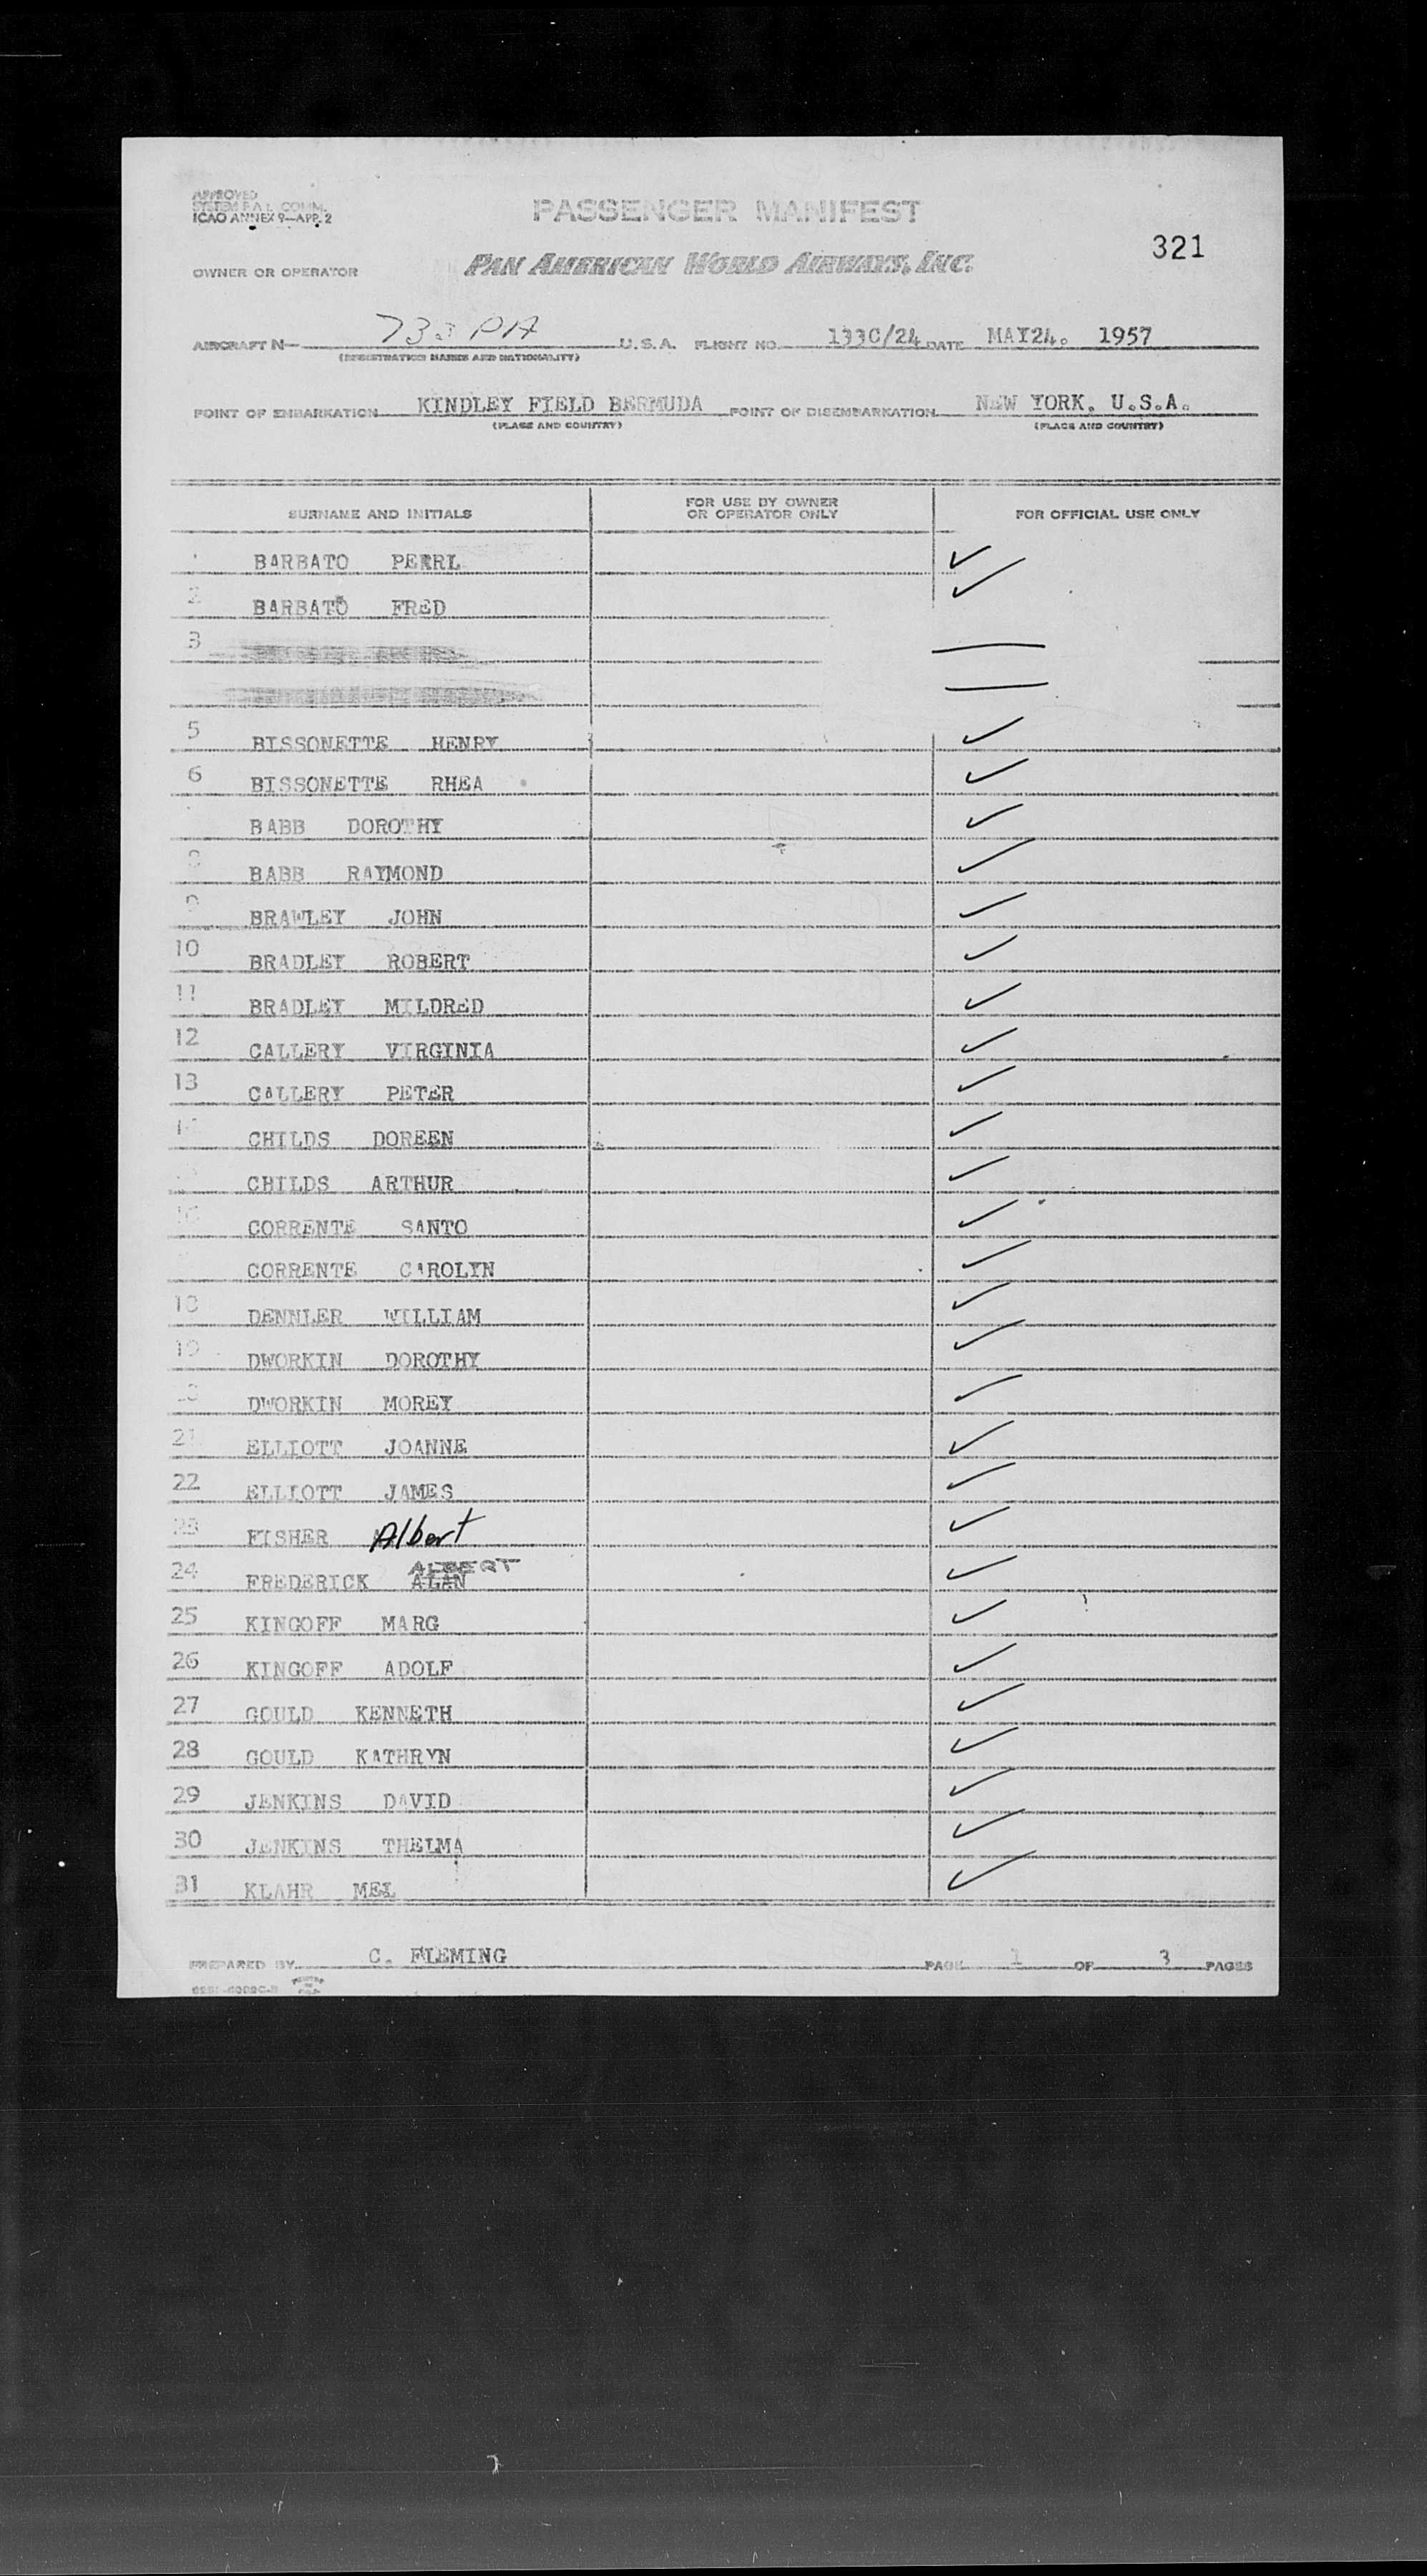 APPROVED
SYSTEM F.A.L. COMM.
ICAO ANNEX 9—APP. 2
PASSENGER MANIFEST
321
OWNER OR OPERATOR PAN AMERICAN WORLD AIRWAYS, INC.
AIRCRAFT N— 733 PA U.S.A. FLIGHT NO. 133C/24 DATE MAY24. 1957
(REGISTRATION MARKS AND NATIONALITY)
POINT OF EMBARKATION KINDLEY FIELD BERMUDA POINT OF DISEMBARKATION NEW YORK. U.S.A.
(PLACE AND COUNTRY) (PLACE AND COUNTRY)
SURNAME AND INITIALS FOR USE BY OWNER OR OPERATOR ONLY FOR OFFICIAL USE ONLY
BARBATO PERRL ✓
2 BARBATO FRED ✓
3 —
—
5 BISSONETTE HENRY ✓
6 BISSONETTE RHEA ✓
BABB DOROTHY ✓
8 BABB RAYMOND ✓
9 BRAWLEY JOHN ✓
10 BRADLEY ROBERT ✓
11 BRADLEY MILDRED ✓
12 CALLERY VIRGINIA ✓
13 CALLERY PETER ✓
14 CHILDS DOREEN ✓
CHILDS ARTHUR ✓
16 CORRENTE SANTO ✓
CORRENTE CAROLYN ✓
18 DENNLER WILLIAM ✓
19 DWORKIN DOROTHY ✓
20 DWORKIN MOREY ✓
21 ELLIOTT JOANNE ✓
22 ELLIOTT JAMES ✓
23 FISHER Albert ✓
24 FREDERICK ALAN ALBERT ✓
25 KINGOFF MARG ✓
26 KINGOFF ADOLF ✓
27 GOULD KENNETH ✓
28 GOULD KATHRYN ✓
29 JENKINS DAVID ✓
30 JENKINS THELMA ✓
31 KLAHR MEL ✓
PREPARED BY C. FLEMING PAGE 1 OF 3 PAGES